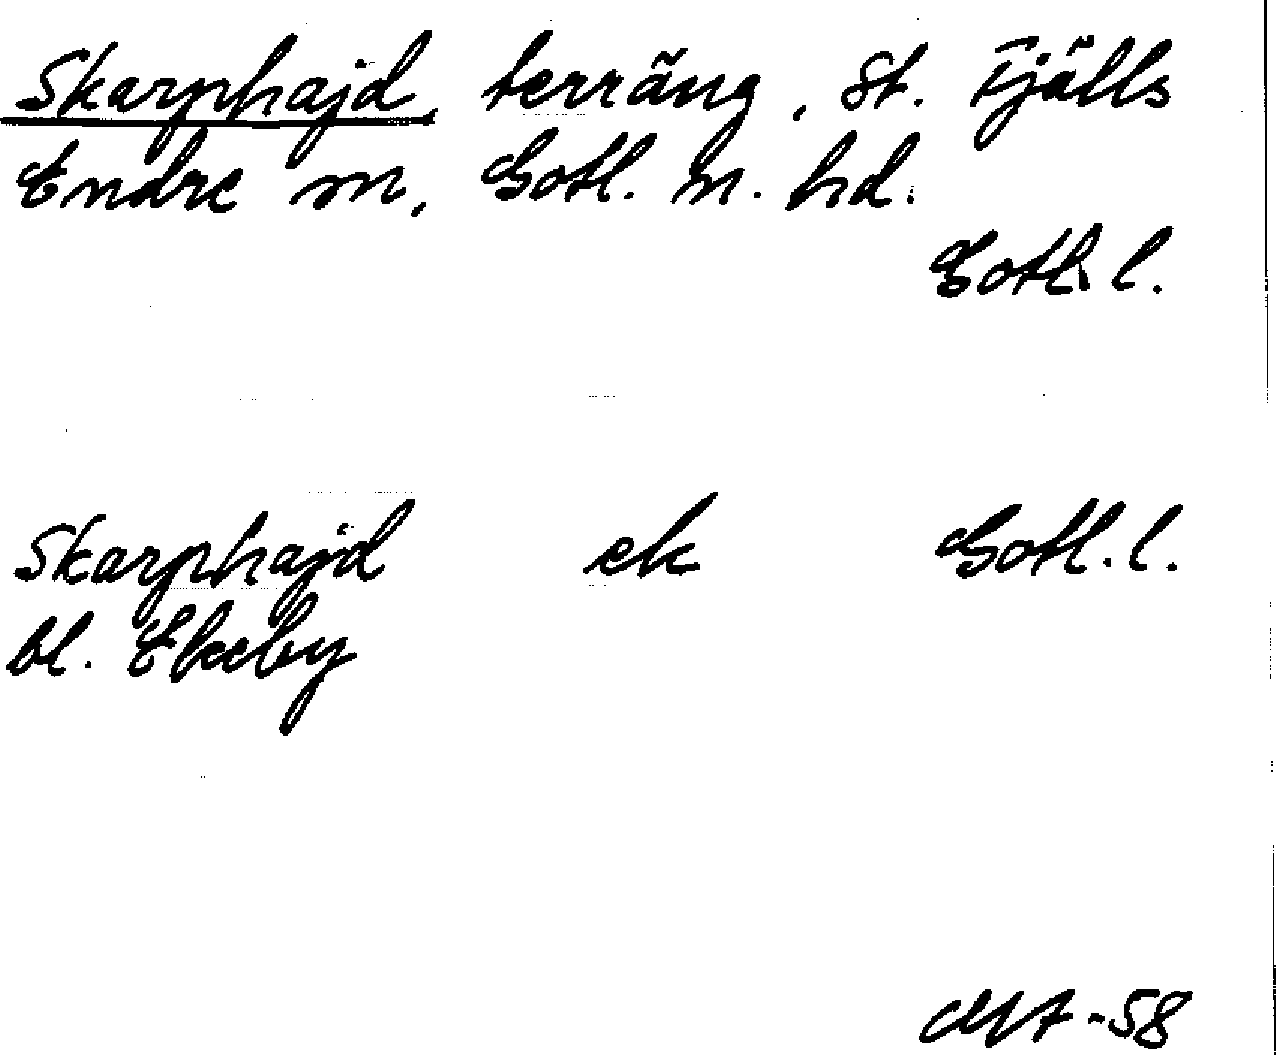 Skarphajd, terräng, St. Fjälls
Endre sn, Gotl. n. hd.
Gotl. l.
Skarphajd ek Gotl. l.
bl. Ekeby
-58